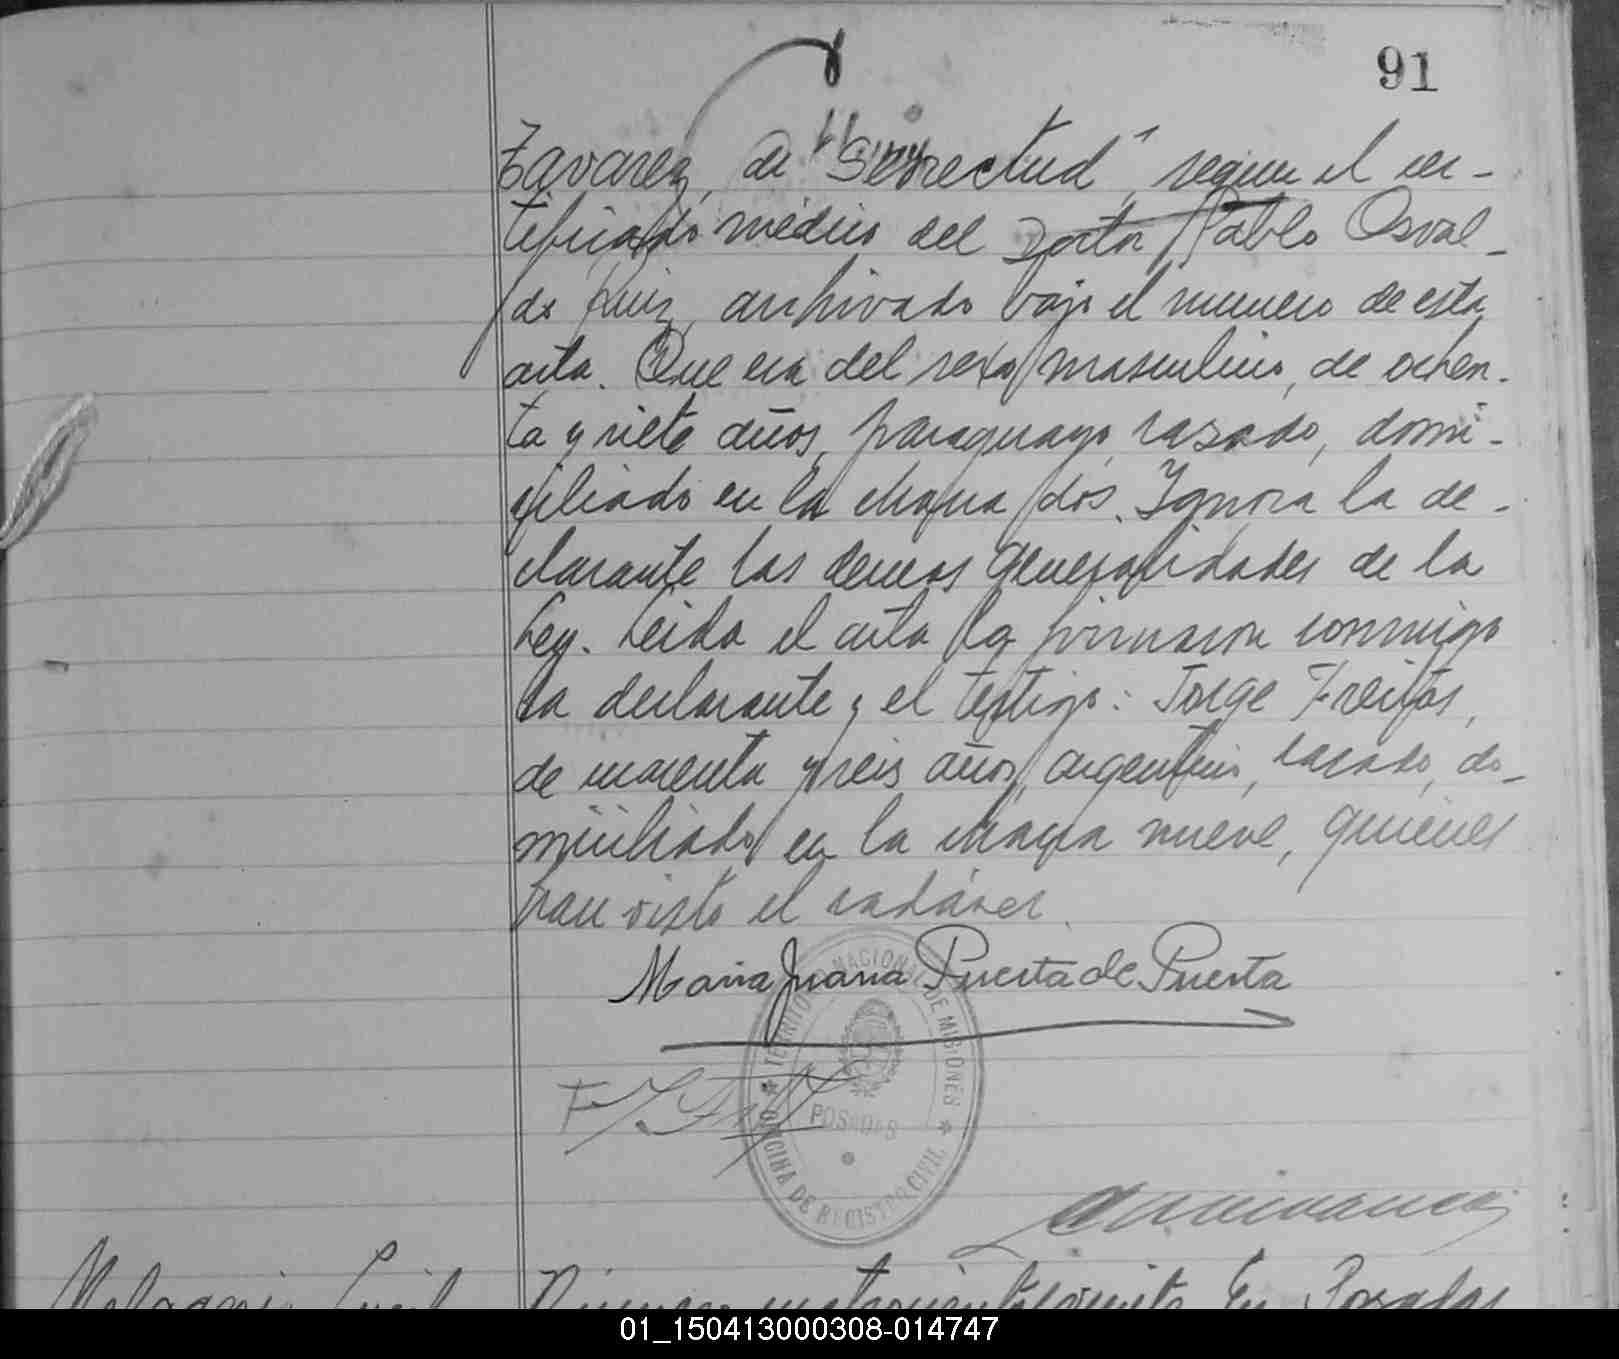 91
Tavarez, de "Senectud", segun el cer-
tificado médico del Doctor Pablo Osval-
do Ruiz, archivado bajo el numero de esta
acta. Que era del sexo masculino, de ochen-
ta y siete años, paraguayo, casado, domi-
ciliado en la chacra dos. Ignora la de-
clarante las demas generalidades de la
Ley. Leida el acta la firmaron conmigo
la declarante y el testigo: Jorge Freitas,
de cuarenta y seis años, argentino, casado, do-
miciliado en la chacra nueve, quienes
han visto el cadáver.
Maria Juana Puerta de Puerta
TERRITORIO NACIONAL DE MISIONES
POSADAS
OFICINA DE REGISTRO CIVIL
Numero cuatrocientos veinte En Posadas
01_150413000308-014747